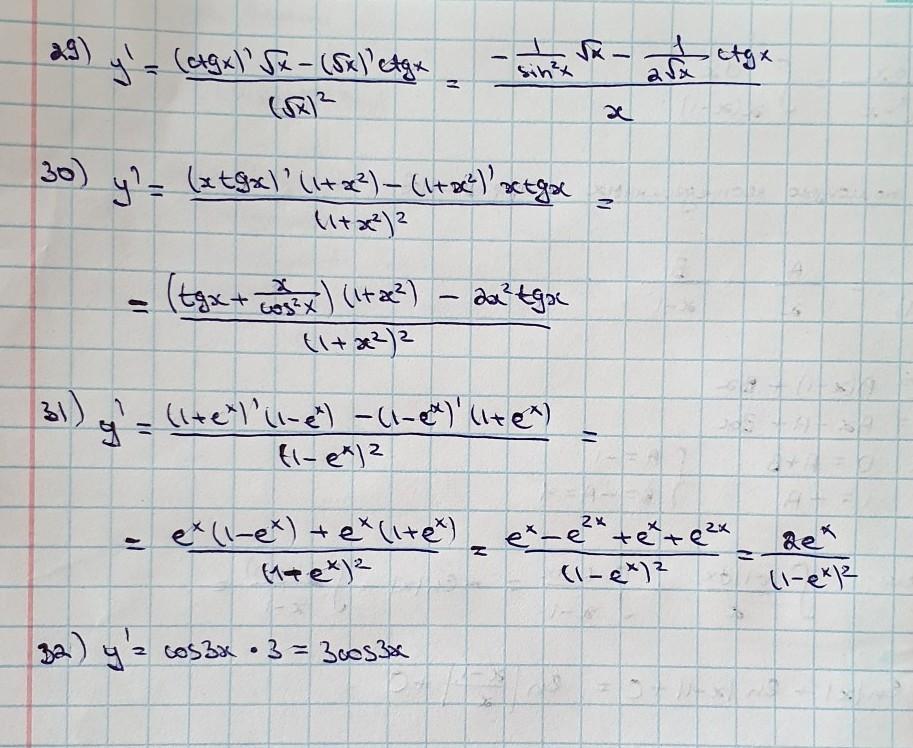 29) y' = ((ctgx)' √x − (√x)' ctgx) / (√x)² = (−1/sin²x √x − 1/(2√x) ctgx) / x
30) y' = ((x tgx)' (1+x²) − (1+x²)' x tgx) / (1+x²)² =
= ((tgx + x/cos²x) (1+x²) − 2x² tgx) / (1+x²)²
31) y' = ((1+eˣ)' (1−eˣ) − (1−eˣ)' (1+eˣ)) / (1−eˣ)² =
= (eˣ (1−eˣ) + eˣ (1+eˣ)) / (1−eˣ)² = (eˣ − e²ˣ + eˣ + e²ˣ) / (1−eˣ)² = 2eˣ / (1−eˣ)²
32) y' = cos3x · 3 = 3cos3x